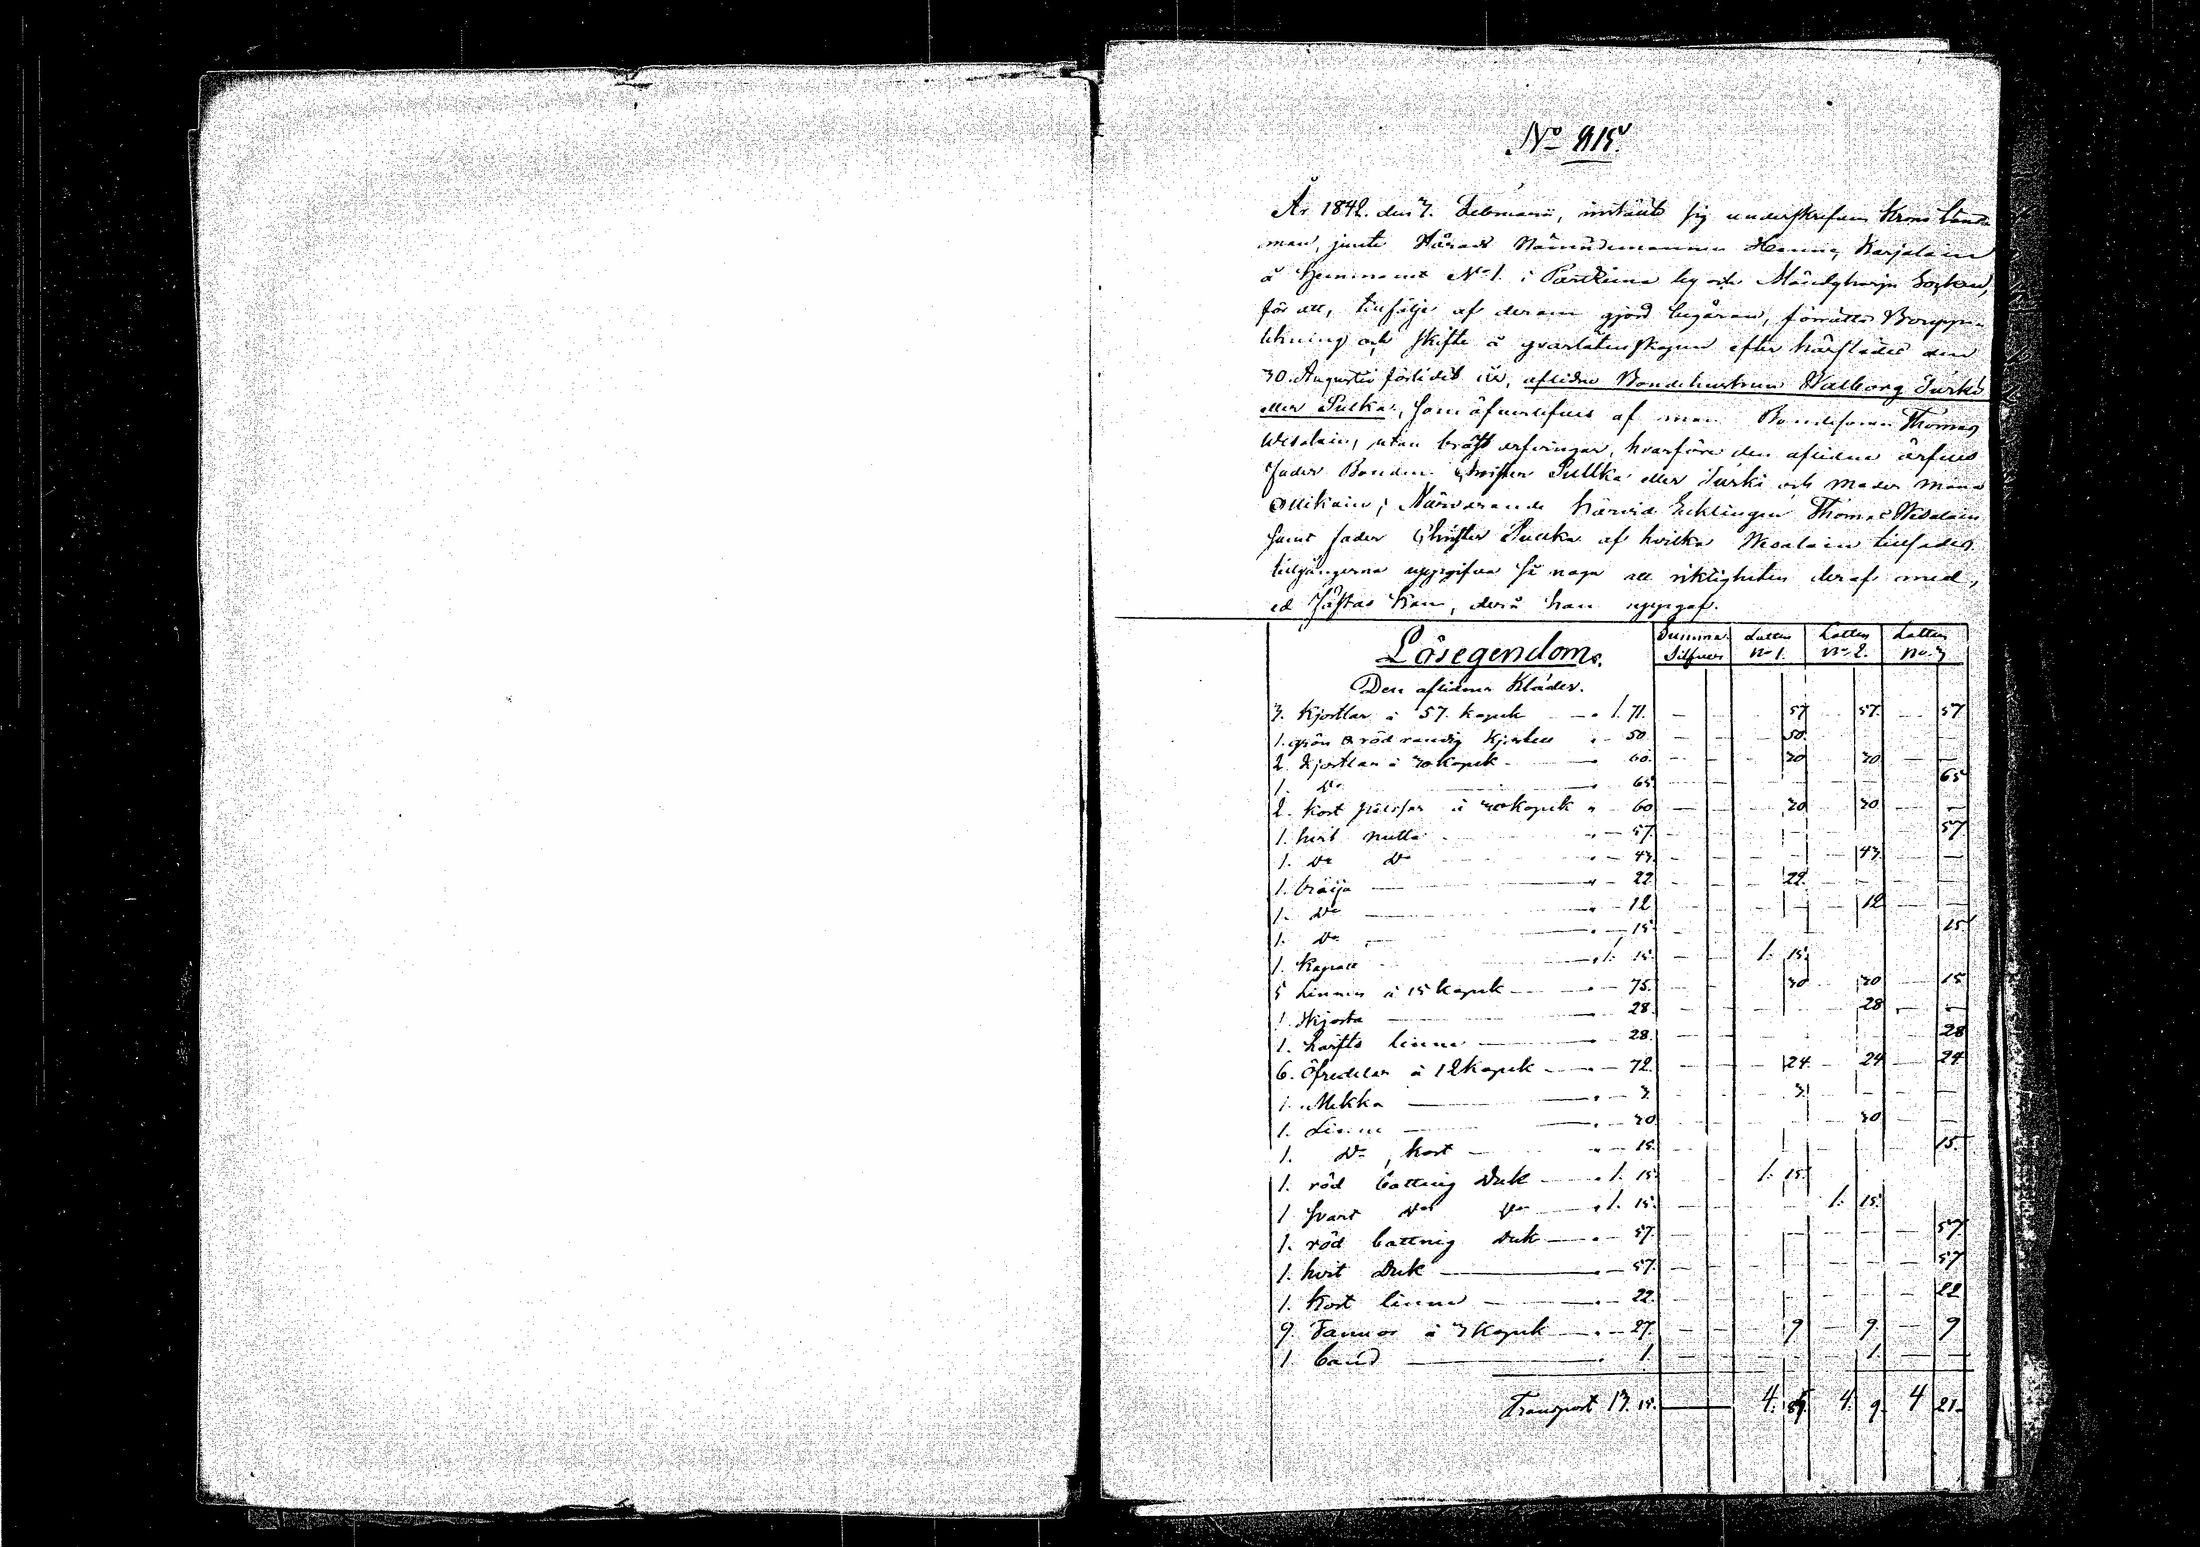 No 215.
År 1842. den 7. Februarii, instälte sig underskrifven Krono Läns-
man, jemte Härads Nämndemannen Henric Karjalain
å Hemmanet No 1. i Partsima by och Mändyharju Socken,
för att, tillfölje af derom gjord begäran, förrätta Bouppte-
kning och skifte å qvarlåtenskapen efter härstädes den
30. Augustii förlidit år, aflidne Bondehustrun Walborg Turki
eller Pulka, som öfverlefves af man Bondesonen Thomas
Wesalain, utan bröst arfvingar, hvarföre den aflidna ärfves
fader Bonden Christer Pullka eller Turki och moder Maria
Ollikain; Närvarande härvid Enklingen Thomas Wesalain
samt fader Christer Pullka af hvilka Wesalain tillsades
tillgångerna uppgifva så noga att riktigheten deraf med,
ed fästas kan, derå han uppgaf.
Lösegendom. Summa Silfver Lotten No 1. Lotten No 2. Lotten No 3
Den aflidnes Kläder.
3. Kjortlar à 57. kopek — " 1. 71. — 57 57. 57
1. grön & röd randig Kjortel " - 50. 50.
2. Kjortlar à 30 kopek — 60. 30 30
1. Do " 65 65
2. kort pälsar à 30 kopek " 60 30 30
1. hvit mutta " — 57. 57
1. Do Do " — 43. 43.
1. tröija — " — 22 22.
1. Do — " — 12 12
1. Do " — 15 15
1. Kapott " 1. 15. 1. 15.
5 Linnen à 15 kopek — " — 75. 30 30 15
1. Skjorta — 28. 28
1. härfts linne — 28. 28
6. Öfredelar à 12 kopek — " — 72. 24 24 24
1. Mekko — " — 3. 3.
1. Linne — " — 30. 30
1. Do, kort — " — 15. 15.
1. röd Cattung Duk — " 1. 15. 1. 15.
1. svart Do Do — " 1. 15. 1. 15.
1. röd Cattung Duk — " — 57. 57
1. hvit Duk — " — 57. 57
1. Kort linne — " — 22. 22
9. Famnor à 3 kopek — " — 27. 9 9. 9
1. band — " 1. 1.
Transport 13. 15. — 4. 85 4. 9. 4 21.